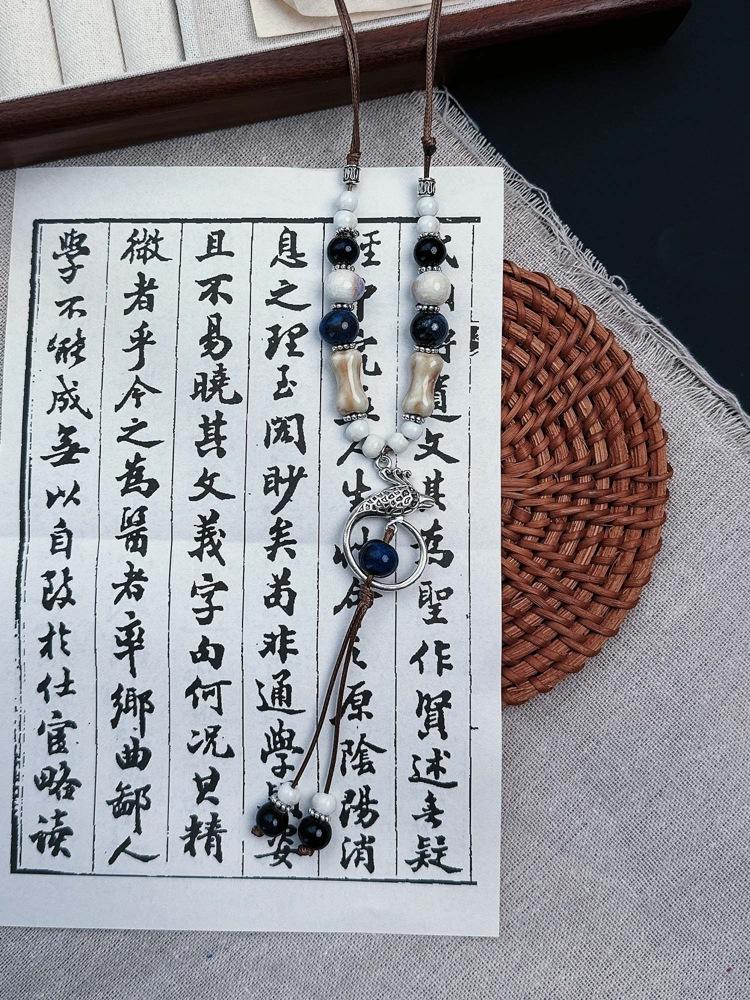 文其為聖作賢述无疑
人生原陰陽消
息之理至閎眇矣苟非通學姿
且不易曉其文義字句何況其精
微者乎今之為醫者率鄉曲鄙人
學不能成無以自致於仕宦略读